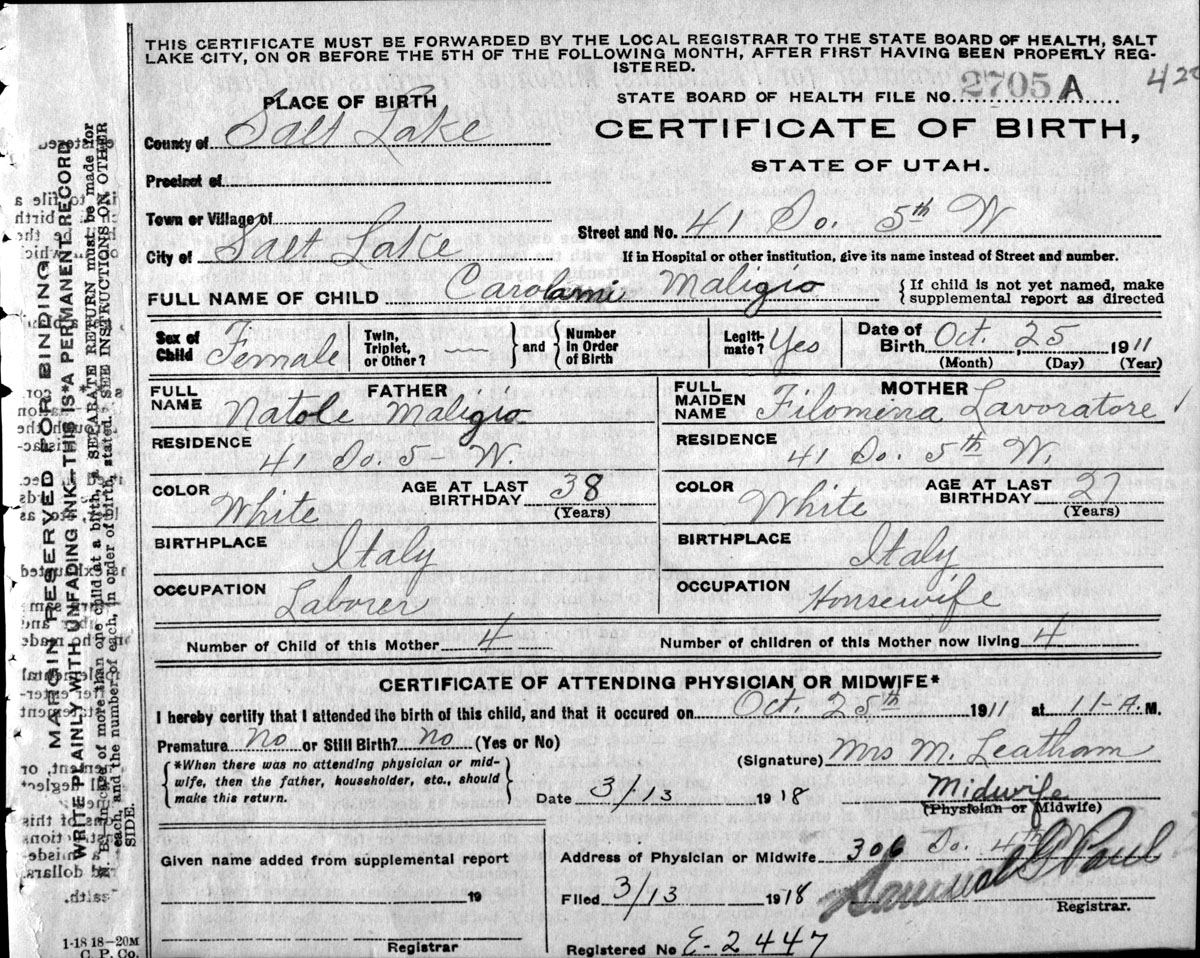 THIS CERTIFICATE MUST BE FORWARDED BY THE LOCAL REGISTRAR TO THE STATE BOARD OF HEALTH, SALT
LAKE CITY, ON OR BEFORE THE 5TH OF THE FOLLOWING MONTH, AFTER FIRST HAVING BEEN PROPERLY REG-
ISTERED.
STATE BOARD OF HEALTH FILE NO. 2705 A
PLACE OF BIRTH
CERTIFICATE OF BIRTH,
STATE OF UTAH.
County of Salt Lake
Precinct of
Town or Village of
Street and No. 41 So. 5th W
City of Salt Lake
If in Hospital or other institution, give its name instead of Street and number.
FULL NAME OF CHILD Maligio
{ If child is not yet named, make
supplemental report as directed
Sex of Child Female
Twin, Triplet, or Other? —
} and {
Number In Order of Birth
Legiti-mate? Yes
Date of Birth Oct. 25 1911
(Month) (Day) (Year)
FATHER
FULL NAME Natole Maligio
MOTHER
FULL MAIDEN NAME Filomena Lavoratore
RESIDENCE 41 So. 5- W.
RESIDENCE 41 So. 5th W.
COLOR White
AGE AT LAST BIRTHDAY 38
(Years)
COLOR White
AGE AT LAST BIRTHDAY 27
(Years)
BIRTHPLACE Italy
BIRTHPLACE Italy
OCCUPATION Laborer
OCCUPATION Housewife
Number of Child of this Mother 4
Number of children of this Mother now living 4
CERTIFICATE OF ATTENDING PHYSICIAN OR MIDWIFE*
I hereby certify that I attended the birth of this child, and that it occured on Oct. 25th 1911 at 11-A.M.
Premature No or Still Birth? No (Yes or No)
{ *When there was no attending physician or mid-
wife, then the father, householder, etc., should
make this return. }
(Signature) Mrs M. Leatham
Midwife
(Physician or Midwife)
Date 3/13 1918
Given name added from supplemental report
19
Registrar
Address of Physician or Midwife 306 So. 4th W.
Filed 3/13 1918
Samuel G Paul
Registrar.
Registered No E-2447
1-18 18—20M
C. P. Co.
MARGIN RESERVED FOR BINDING
WRITE PLAINLY WITH UNFADING INK—THIS IS A PERMANENT RECORD
N. B. In case of more than one child at a birth, a SEPARATE RETURN must be made for
each, and the number of each, in order of birth, stated. SEE INSTRUCTIONS ON OTHER
SIDE.